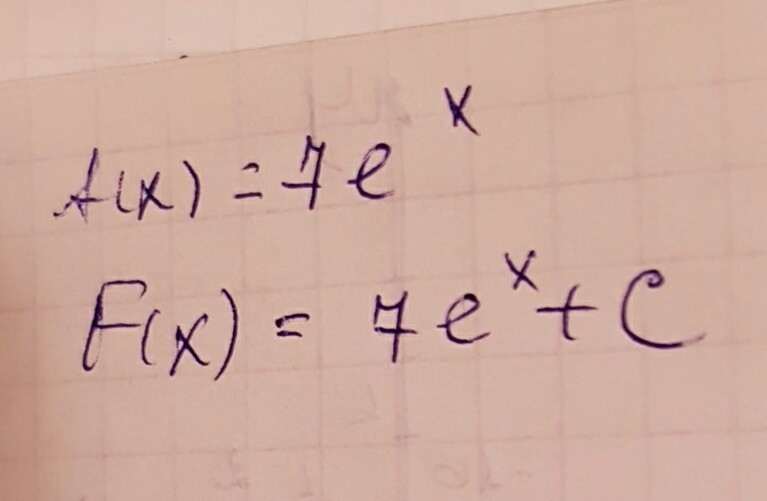 f(x) = 7e^x
F(x) = 7e^x + C